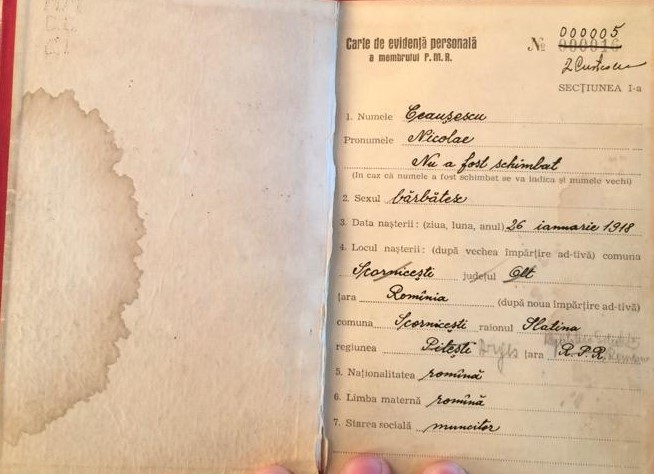 Carte de evidență personală
a membrului P. M. R.
№ 000010
000005
SECȚIUNEA I-a
1. Numele Ceaușescu
Pronumele Nicolae
Nu a fost schimbat
(In caz că numele a fost schimbat se va indica și numele vechi)
2. Sexul bărbătesc
3. Data nașterii: (ziua, luna, anul) 26 ianuarie 1918
4. Locul nașterii: (după vechea împărțire ad-tivă) comuna
Scornicești județul Olt
țara Romînia (după noua împărțire ad-tivă)
comuna Scornicești raionul Slatina
regiunea Pitești Argeș țara R.P.R.
5. Naționalitatea romînă
6. Limba maternă romînă
7. Starea socială muncitor